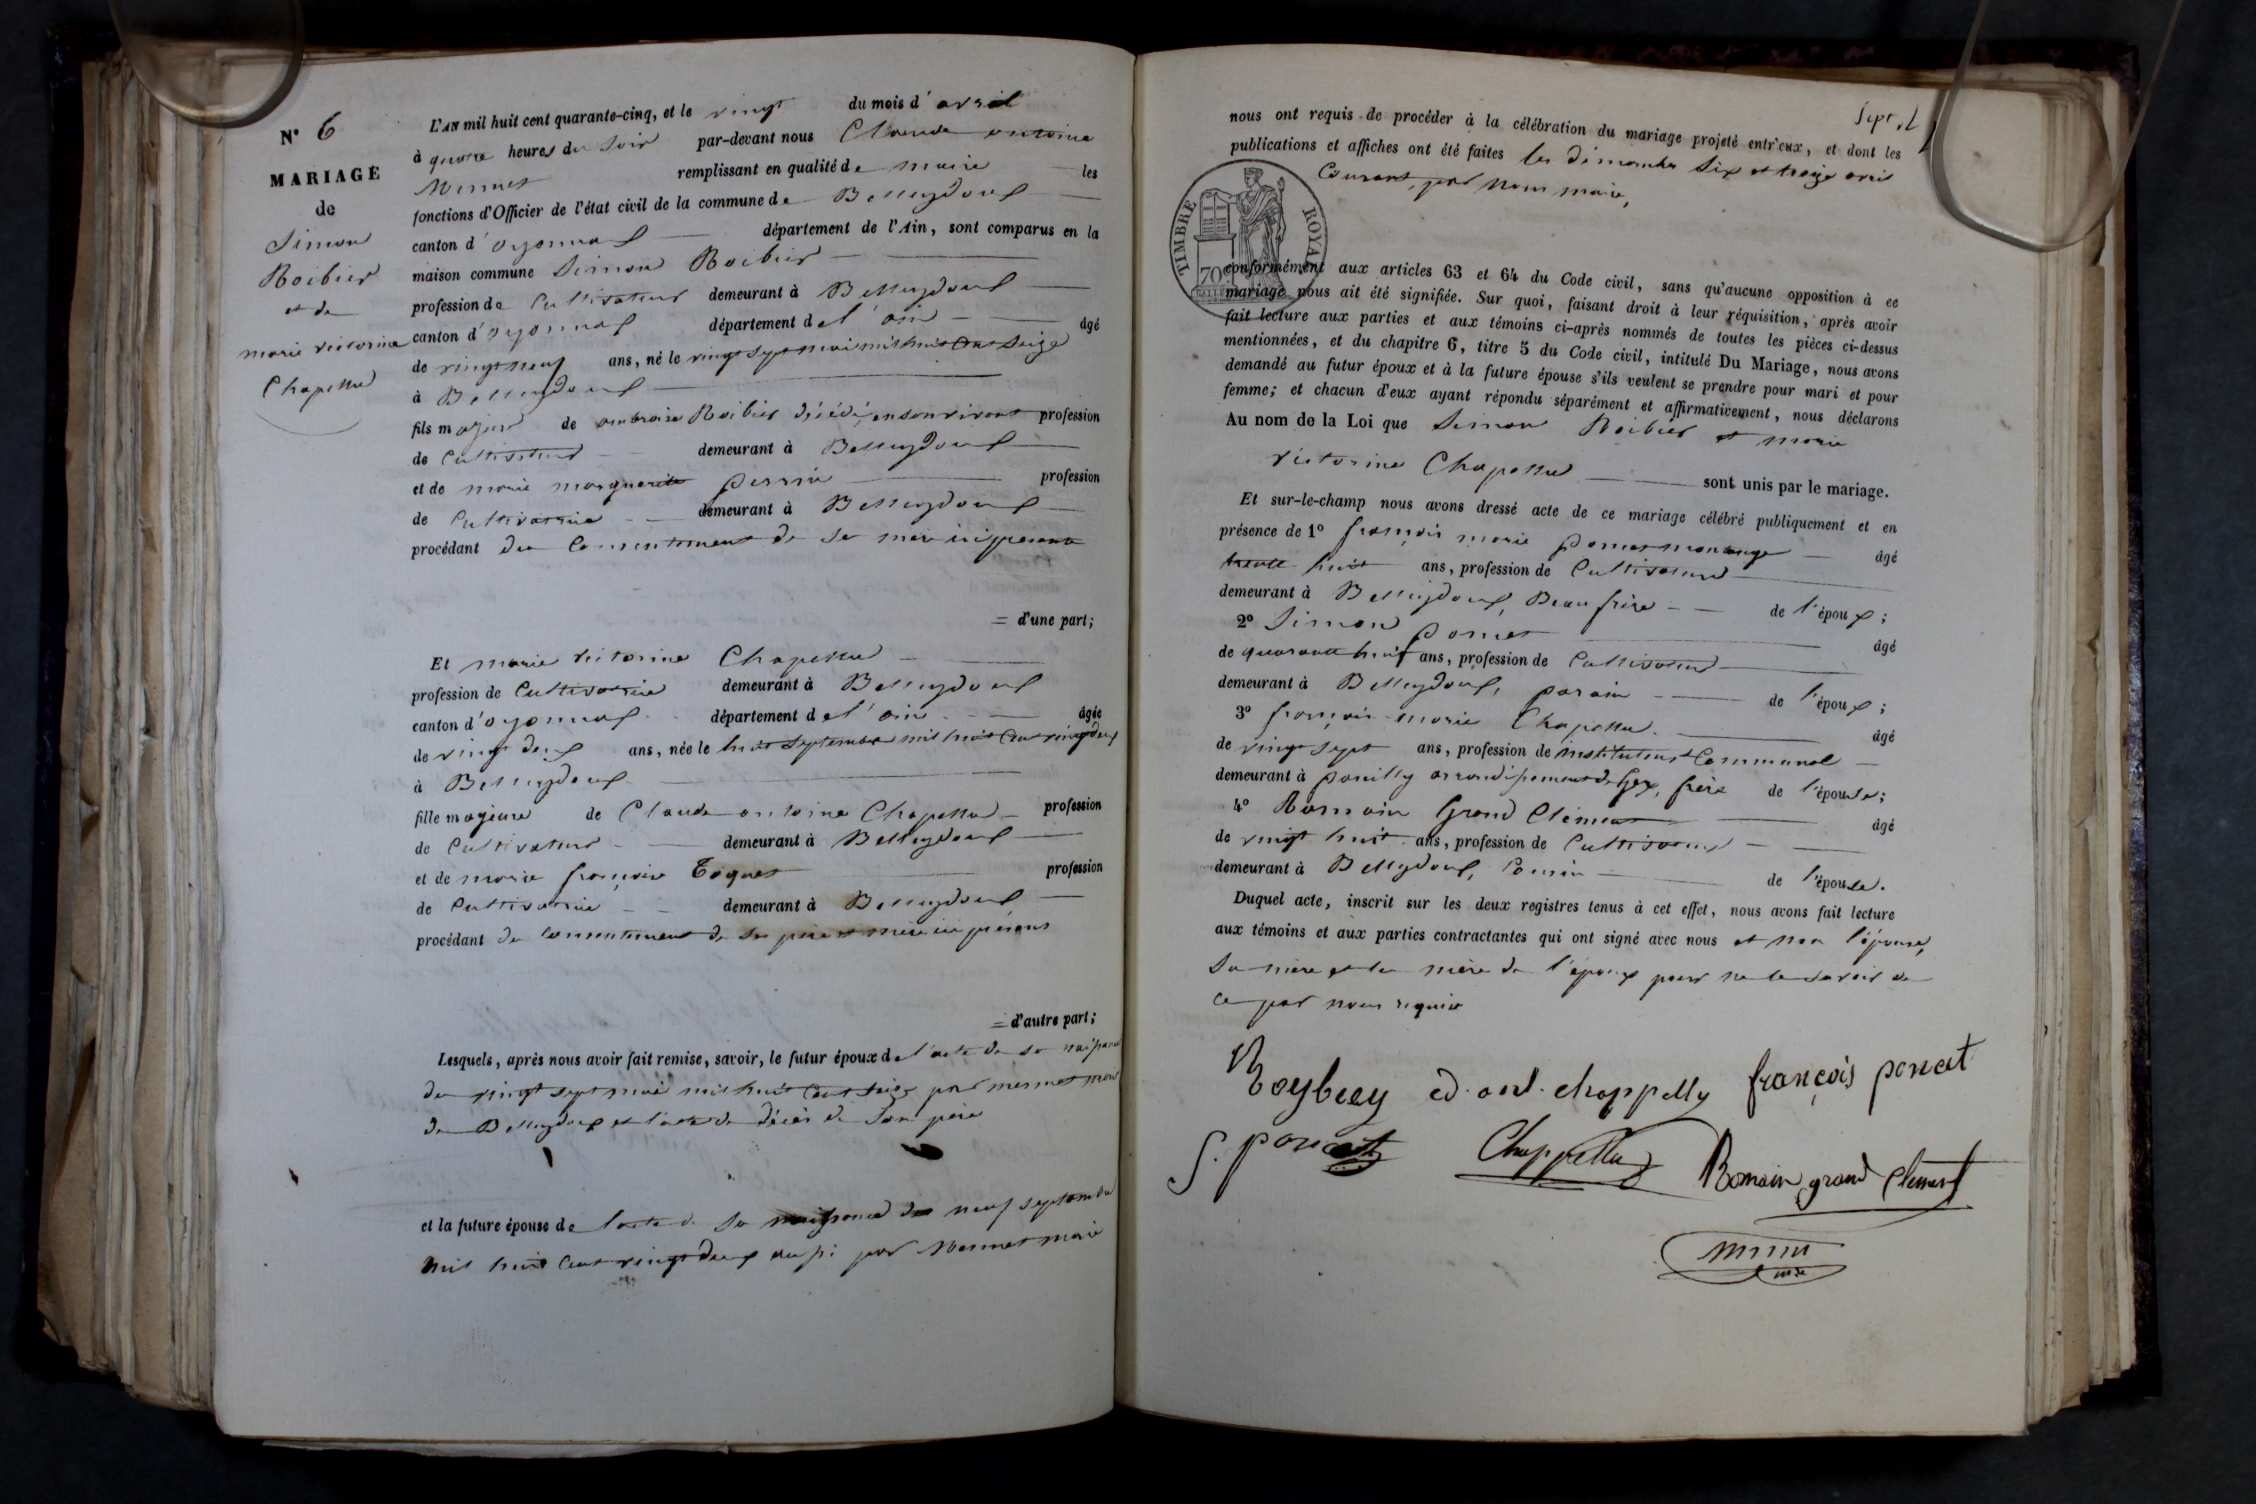 N° 6
MARIAGE
de
Simon
Roibier
et de
marie victorine
Chapellu
L'AN mil huit cent quarante-cinq, et le vingt du mois d'avril
à quatre heures du soir par-devant nous Claude antoine
Mermet remplissant en qualité de maire les
fonctions d'Officier de l'état civil de la commune de Belleydoux
canton d'oyonnax département de l'Ain, sont comparus en la
maison commune Simon Roibier
profession de Cultivateur demeurant à Belleydoux
canton d'oyonnax département de l'ain âgé
de vingt neuf ans, né le vingt sept mai mil huit Cent Seize
à Belleydoux
fils majeur de ambroise Roibier décédé, en son vivant profession
de Cultivateur demeurant à Belleydoux
et de marie marguerite perrin profession
de Cultivatrice demeurant à Belleydoux
procédant du Consentement de sa mere ici présente
= d'une part;
Et marie victorine Chapellu
profession de Cultivatrice demeurant à Belleydoux
canton d'oyonnax département de l'ain âgée
de vingt deux ans, née le huit Septembre mil huit Cent vingt deux
à Belleydoux
fille majeure de Claude antoine Chapellu profession
de Cultivateur demeurant à Belleydoux
et de marie françoise profession
de Cultivatrice demeurant à Belleydoux
procédant du Consentement de ses père et mère ici présens
= d'autre part;
Lesquels, après nous avoir fait remise, savoir, le futur époux de l'acte de sa naissance
du vingt sept mai mil huit Cent Seize par mermet maire
de Belleydoux et l'acte de décès de son père
et la future épouse de l'acte de sa naissance du neuf septembre
mil huit Cent vingt deux aussi par Mermet maire
Sept.
nous ont requis de procéder à la célébration du mariage projeté entr'eux, et dont les
publications et affiches ont été faites les dimanches Six et treize avril
Courant, par nous maire,
TIMBRE ROYAL
70c
conformément aux articles 63 et 64 du Code civil, sans qu'aucune opposition à ce
mariage nous ait été signifiée. Sur quoi, faisant droit à leur réquisition, après avoir
fait lecture aux parties et aux témoins ci-après nommés de toutes les pièces ci-dessus
mentionnées, et du chapitre 6, titre 5 du Code civil, intitulé Du Mariage, nous avons
demandé au futur époux et à la future épouse s'ils veulent se prendre pour mari et pour
femme; et chacun d'eux ayant répondu séparément et affirmativement, nous déclarons
Au nom de la Loi que Simon Roibier et marie
victorine Chapellu sont unis par le mariage.
Et sur-le-champ nous avons dressé acte de ce mariage célébré publiquement et en
présence de 1° françois marie âgé
trente huit ans, profession de Cultivateur
demeurant à Belleydoux, Beau frère de l'époux;
2° Simon poncet âgé
de quarante huit ans, profession de Cultivateur
demeurant à Belleydoux, parain de l'époux;
3° françois-marie Chapellu âgé
de vingt sept ans, profession de instituteur Communal
demeurant à pouilly arrondissement de Gex, frère de l'épouse;
4° Romain Grand Clément âgé
de vingt huit ans, profession de Cultivateur
demeurant à Belleydoux, Cousin de l'épouse.
Duquel acte, inscrit sur les deux registres tenus à cet effet, nous avons fait lecture
aux témoins et aux parties contractantes qui ont signé avec nous et non l'épouse,
Sa mère et la mère de l'époux pour ne le savoir de
ce par nous requis
Roybiey cd. ant. chappelly françois poncet
S. poncet Chappellu Romain grand Clement
mermet
mre